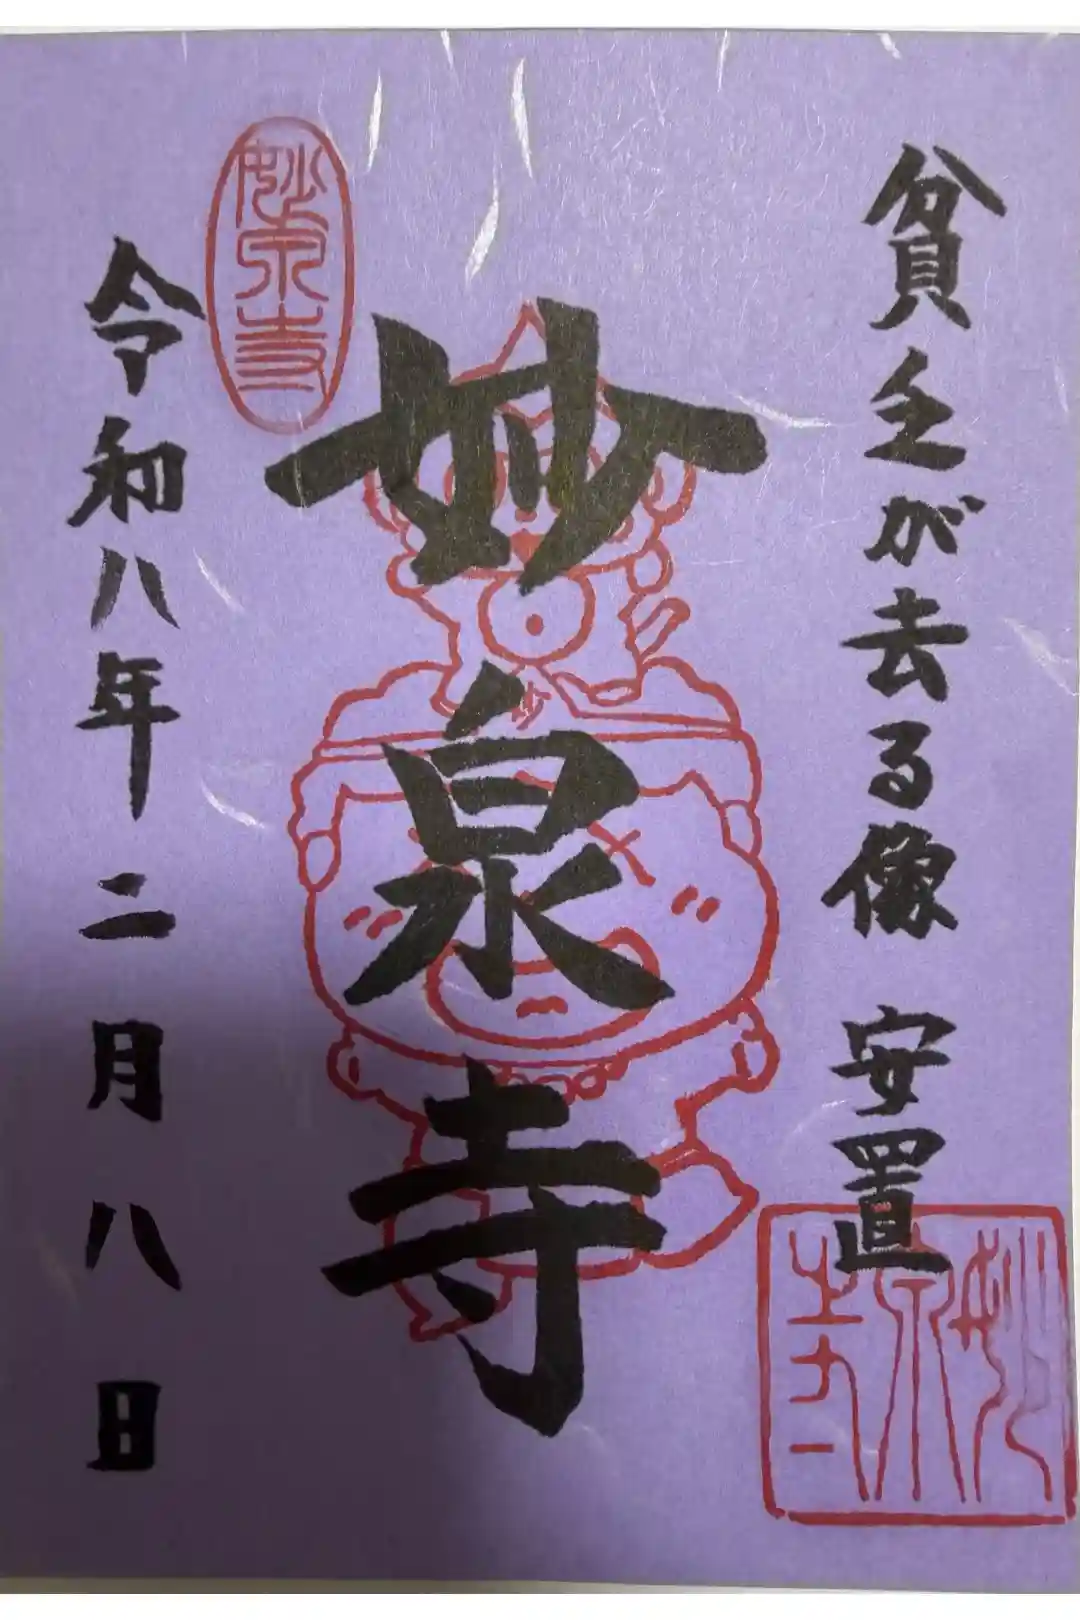 貧乏が去る像 安置
妙泉寺
妙泉寺
令和八年二月八日
妙泉寺